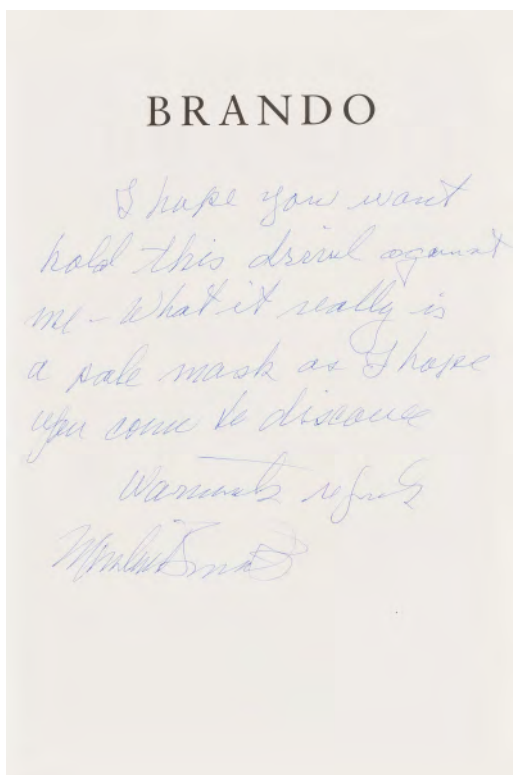 BRANDO
I hope you wont
hold this drivel against
me - What it really is
a pale mask as I hope
you come to discover
Warmest regards
Marlon Brando